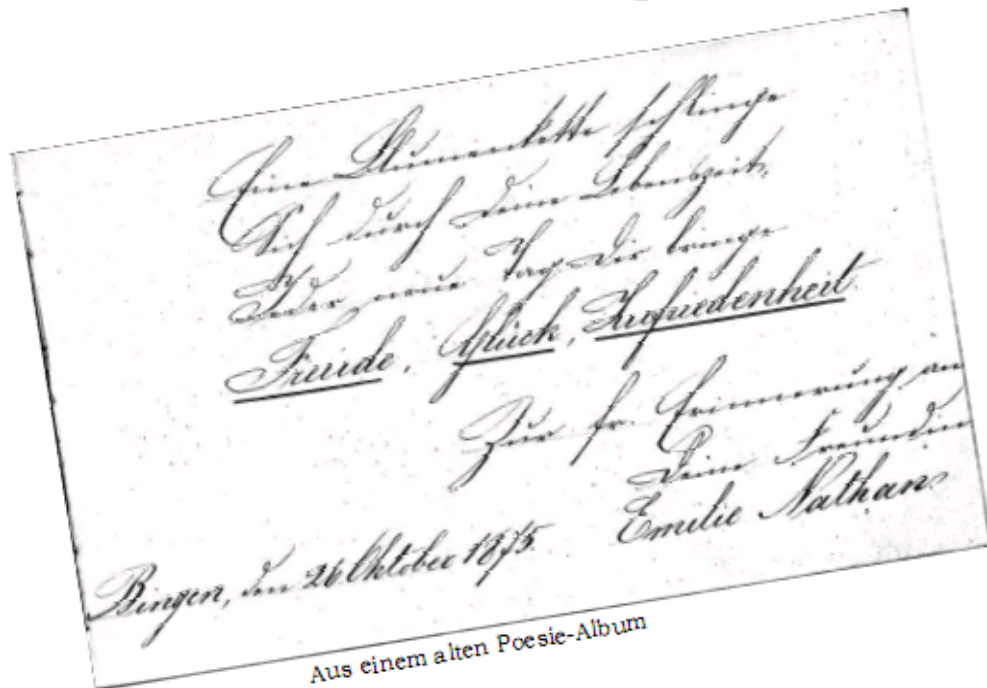 Eine Blumenkette schlinge
Sich durch Deine Lebenszeit,
Jeder neue Tag Dir bringe
Freude, Glück, Zufriedenheit.
Zur fr. Erinnerung an
Deine Freundin
Emilie Nathan.
Bingen, den 26. Oktober 1875.
Aus einem alten Poesie-Album